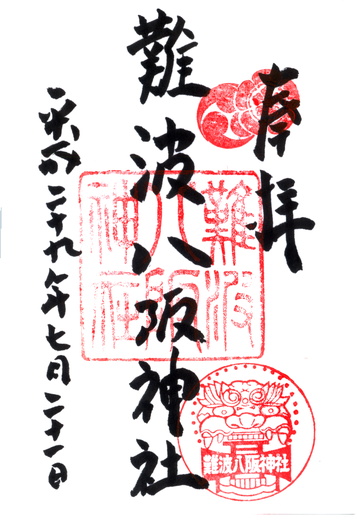 奉拝
難波八阪神社
平成二十九年七月二十一日
難波
八阪
神社
難波八阪神社